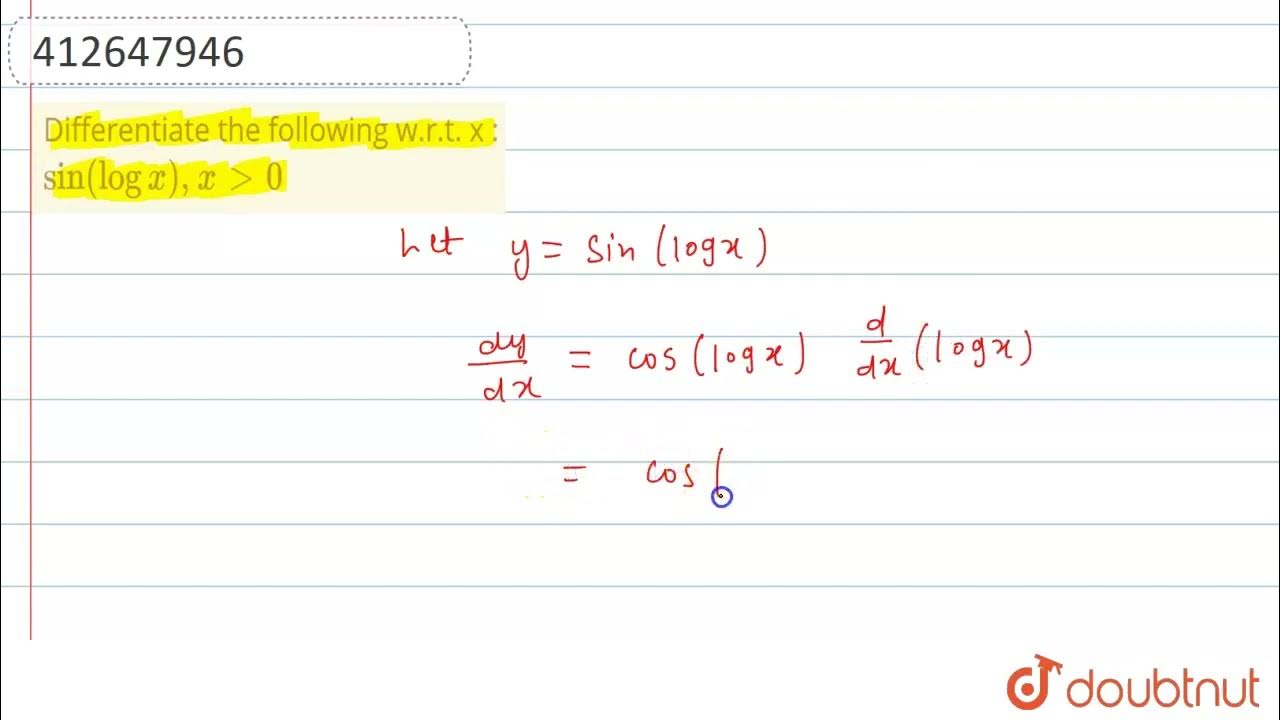 412647946
Differentiate the following w.r.t. x :
sin(log x), x > 0
Let y = sin (log x)
dy/dx = cos (log x) d/dx (log x)
= cos (
doubtnut